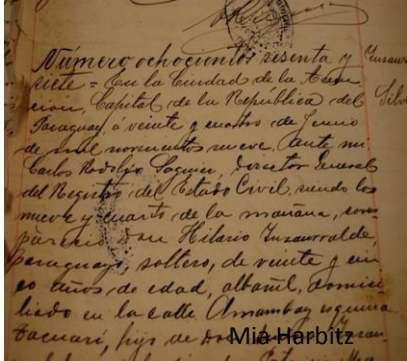 Número ochocientos sesenta y
siete = En la Ciudad de la Asun
ción, Capital de la República del
Paraguay, á veinte y cuatro de Junio
de mil novecientos nueve, ante mi
Carlos Rodolfo Director General
del Registro del Estado Civil, siendo las
nueve y cuarto de la mañana, com
pareció Don Hilario Insaurralde,
paraguayo, soltero, de veinte y cin
co años de edad, albañil, domici
liado en la calle Amambay esquina
Tacuarí, hijo de
Insaur
Silv
Mia Harbitz